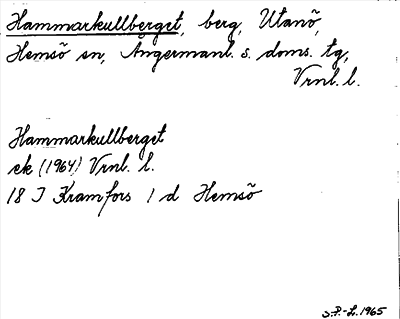 Hammarkullberget, berg, Utanö,
Hemsö sn, Ångermanl. s. doms. tg,
Vrnl. l.
Hammarkullberget
ek (1964) Vrnl. l.
18 I Kramfors 1 d Hemsö
S.P.-L. 1965